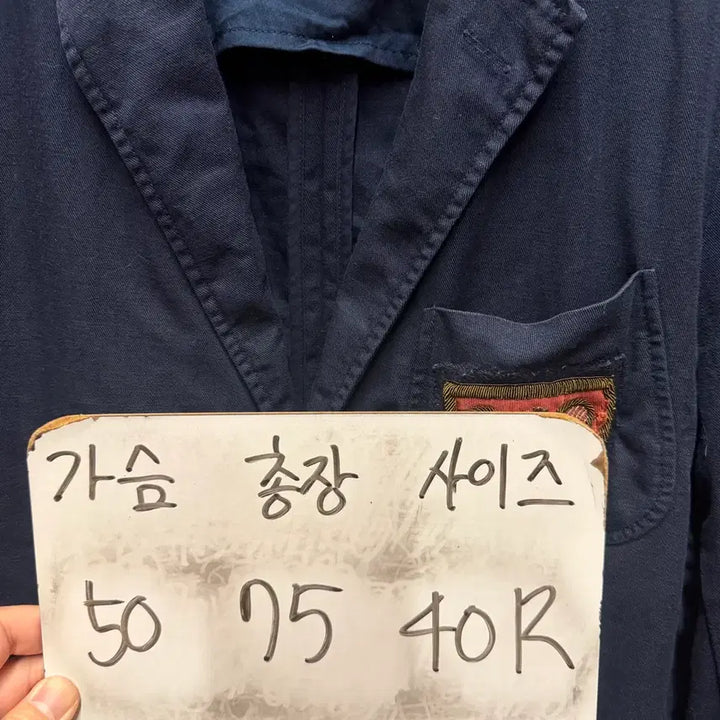 가슴 총장 사이즈
50 75 40R